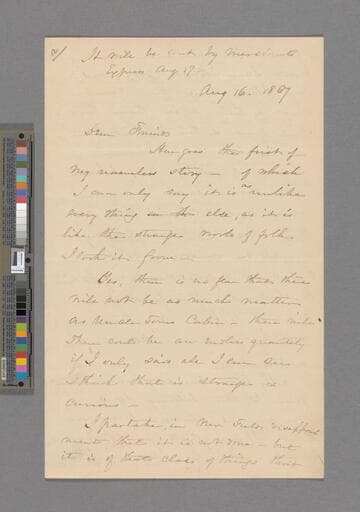 It will be sent by
Express Aug 17
Aug 16. 1867
Dear Friends
Here goes the first of
my nameless story – of which
I can only say it is as unlike
every thing else, as it is
like the strange world of folks
I took it from –
Yes, there is no fear that there
will not be as much matter
as Uncle Toms Cabin – there will
There could be an endless quantity
if I only said all I can see
& think that is strange &
curious –
I partake in Mr Fields disappoint
ment that it is not done – but
it is of that class of things that